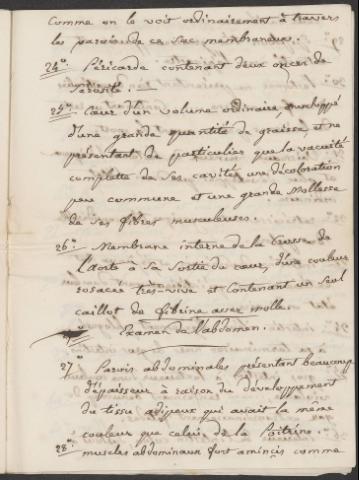 comme on le voit ordinairement à travers
les parois de ce sac membraneux.
24° Péricarde contenant deux onces de
sérosité.
25° Cœur d'un volume ordinaire, enveloppé
d'une grande quantité de graisse, et ne
présentant de particulier que la vacuité
complette de ses cavités, une décoloration
peu commune et une grande mollesse
de ses fibres musculeuses.
26° Membrane interne de la Crosse de
L'aorte à sa sortie du cœur, d'une couleur
rosacée très-vive et contenant un seul
caillot de fibrine assez molle.
Examen de l'abdomen.
27° Parois abdominales présentant beaucoup
d'épaisseur à raison du développement
du tissu adipeux qui avait la même
couleur que celui de la Poitrine.
28° muscles abdominaux fort amincis comme